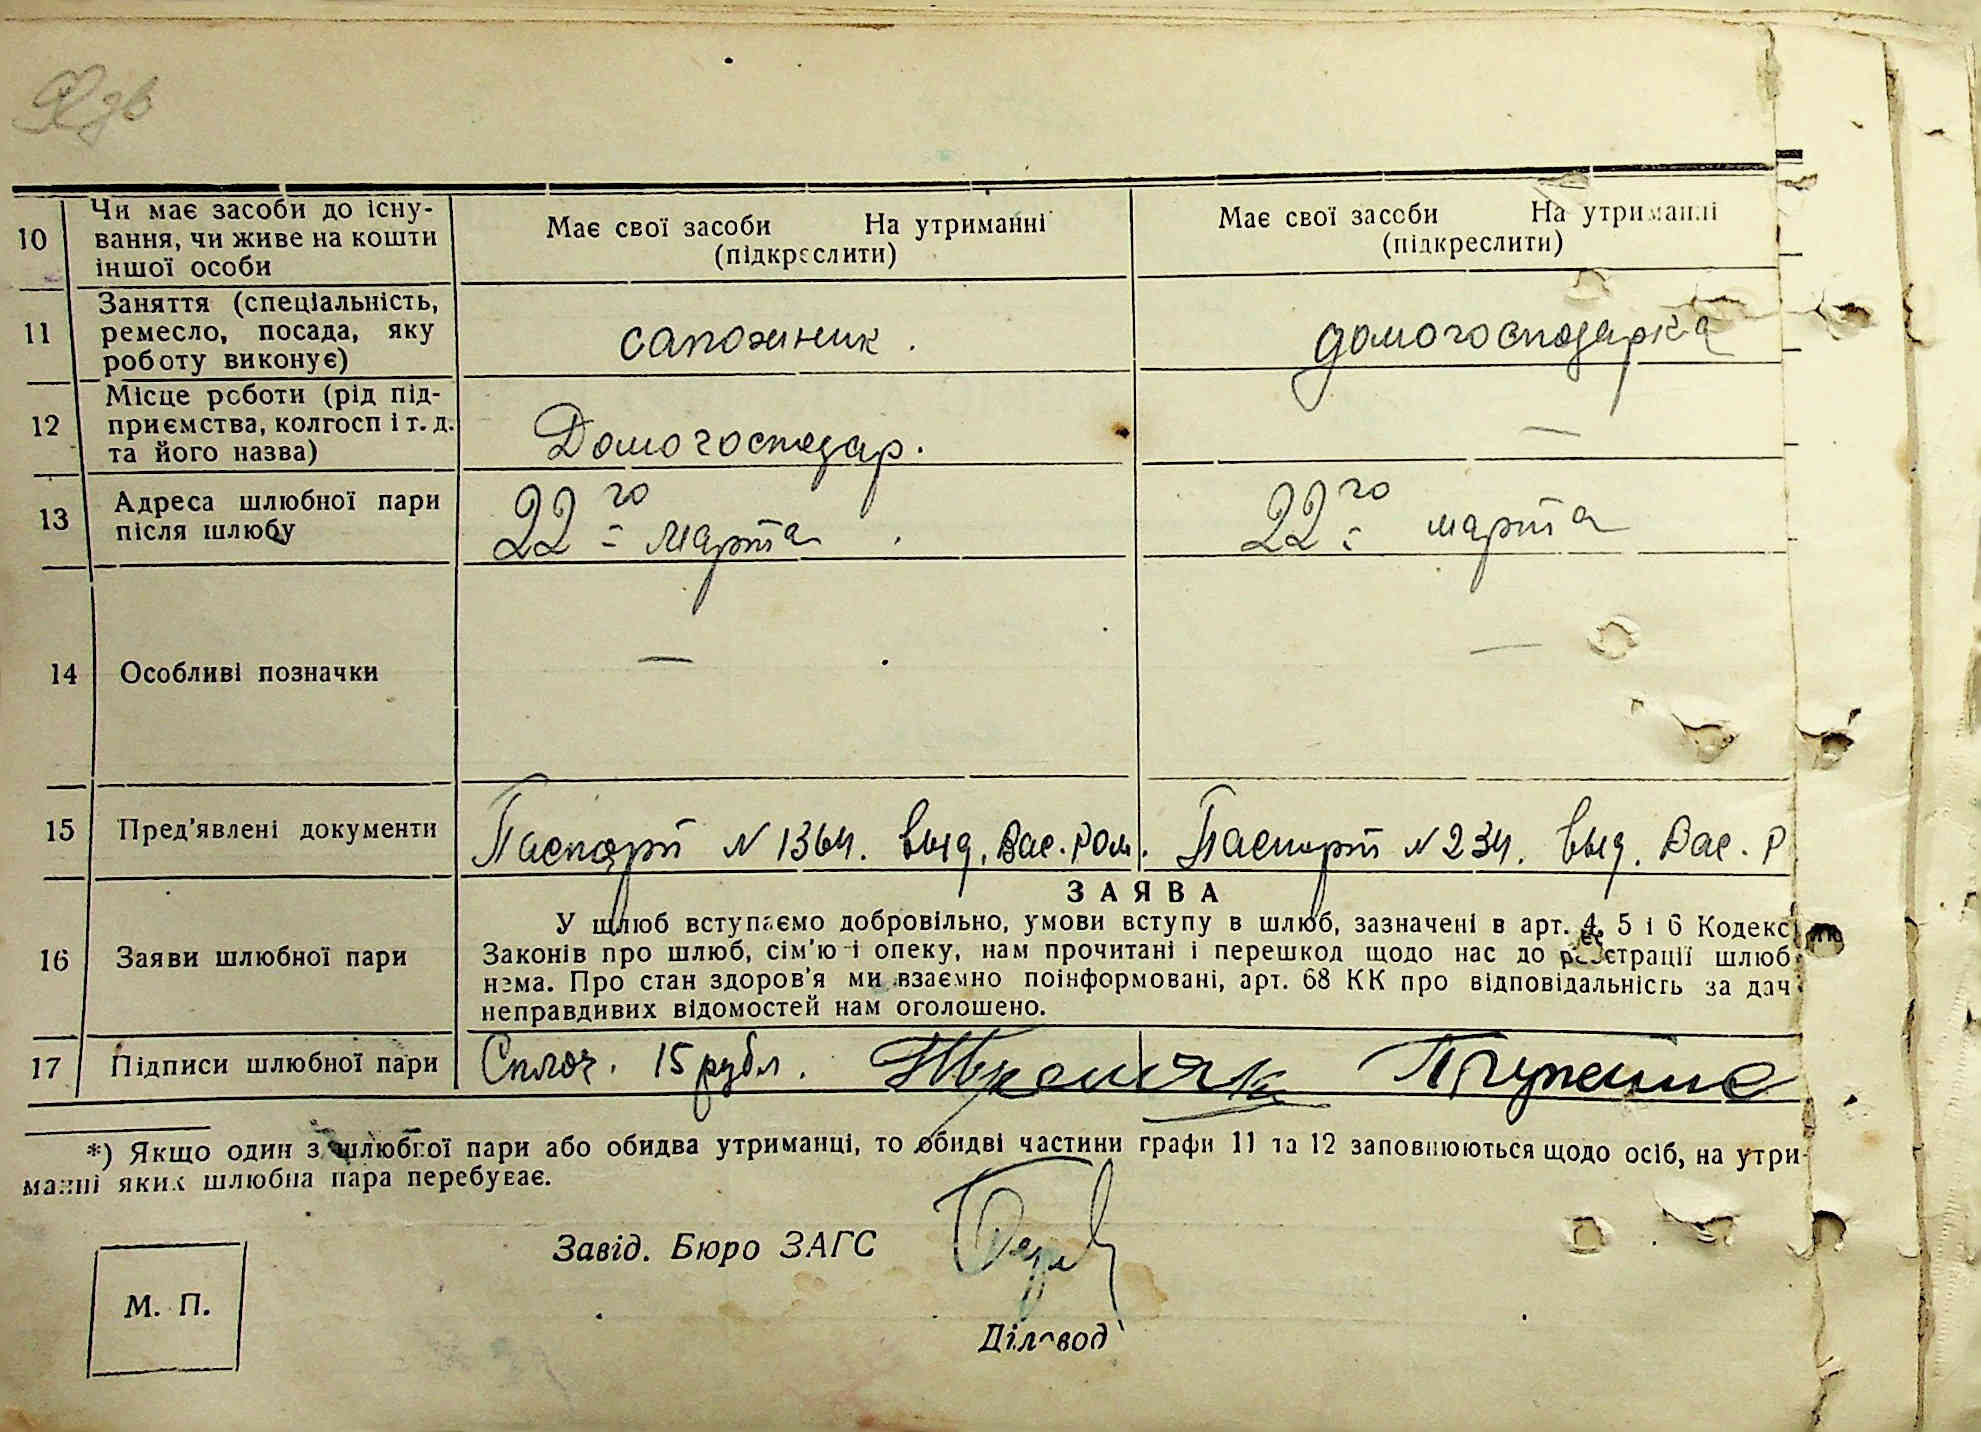 10 Чи має засоби до існу-
вання, чи живе на кошти
іншої особи
Має свої засоби На утриманні
(підкреслити)
Має свої засоби На утриманні
(підкреслити)
11 Заняття (спеціальність,
ремесло, посада, яку
роботу виконує)
сапожник.
домогосподарка
12 Місце роботи (рід під-
приємства, колгосп і т. д.
та його назва)
Домогосподар.
—
13 Адреса шлюбної пари
після шлюбу
22го марта.
22го марта
14 Особливі позначки
—
—
15 Пред'явлені документи
Паспорт N 1364. выд. Вас. Ром.
Паспорт N 234. выд. Вас. Р
16 Заяви шлюбної пари
ЗАЯВА
У шлюб вступаємо добровільно, умови вступу в шлюб, зазначені в арт. 4, 5 і 6 Кодекс
Законів про шлюб, сім'ю і опеку, нам прочитані і перешкод щодо нас до реєстрації шлюб
нема. Про стан здоров'я ми взаємно поінформовані, арт. 68 КК про відповідальність за дач
неправдивих відомостей нам оголошено.
17 Підписи шлюбної пари
Сплоч. 15 рубл.
*) Якщо один з шлюбної пари або обидва утриманці, то обидві частини графи 11 та 12 заповнюються щодо осіб, на утри-
манні яких шлюбна пара перебуває.
Завід. Бюро ЗАГС
М. П.
Діловод